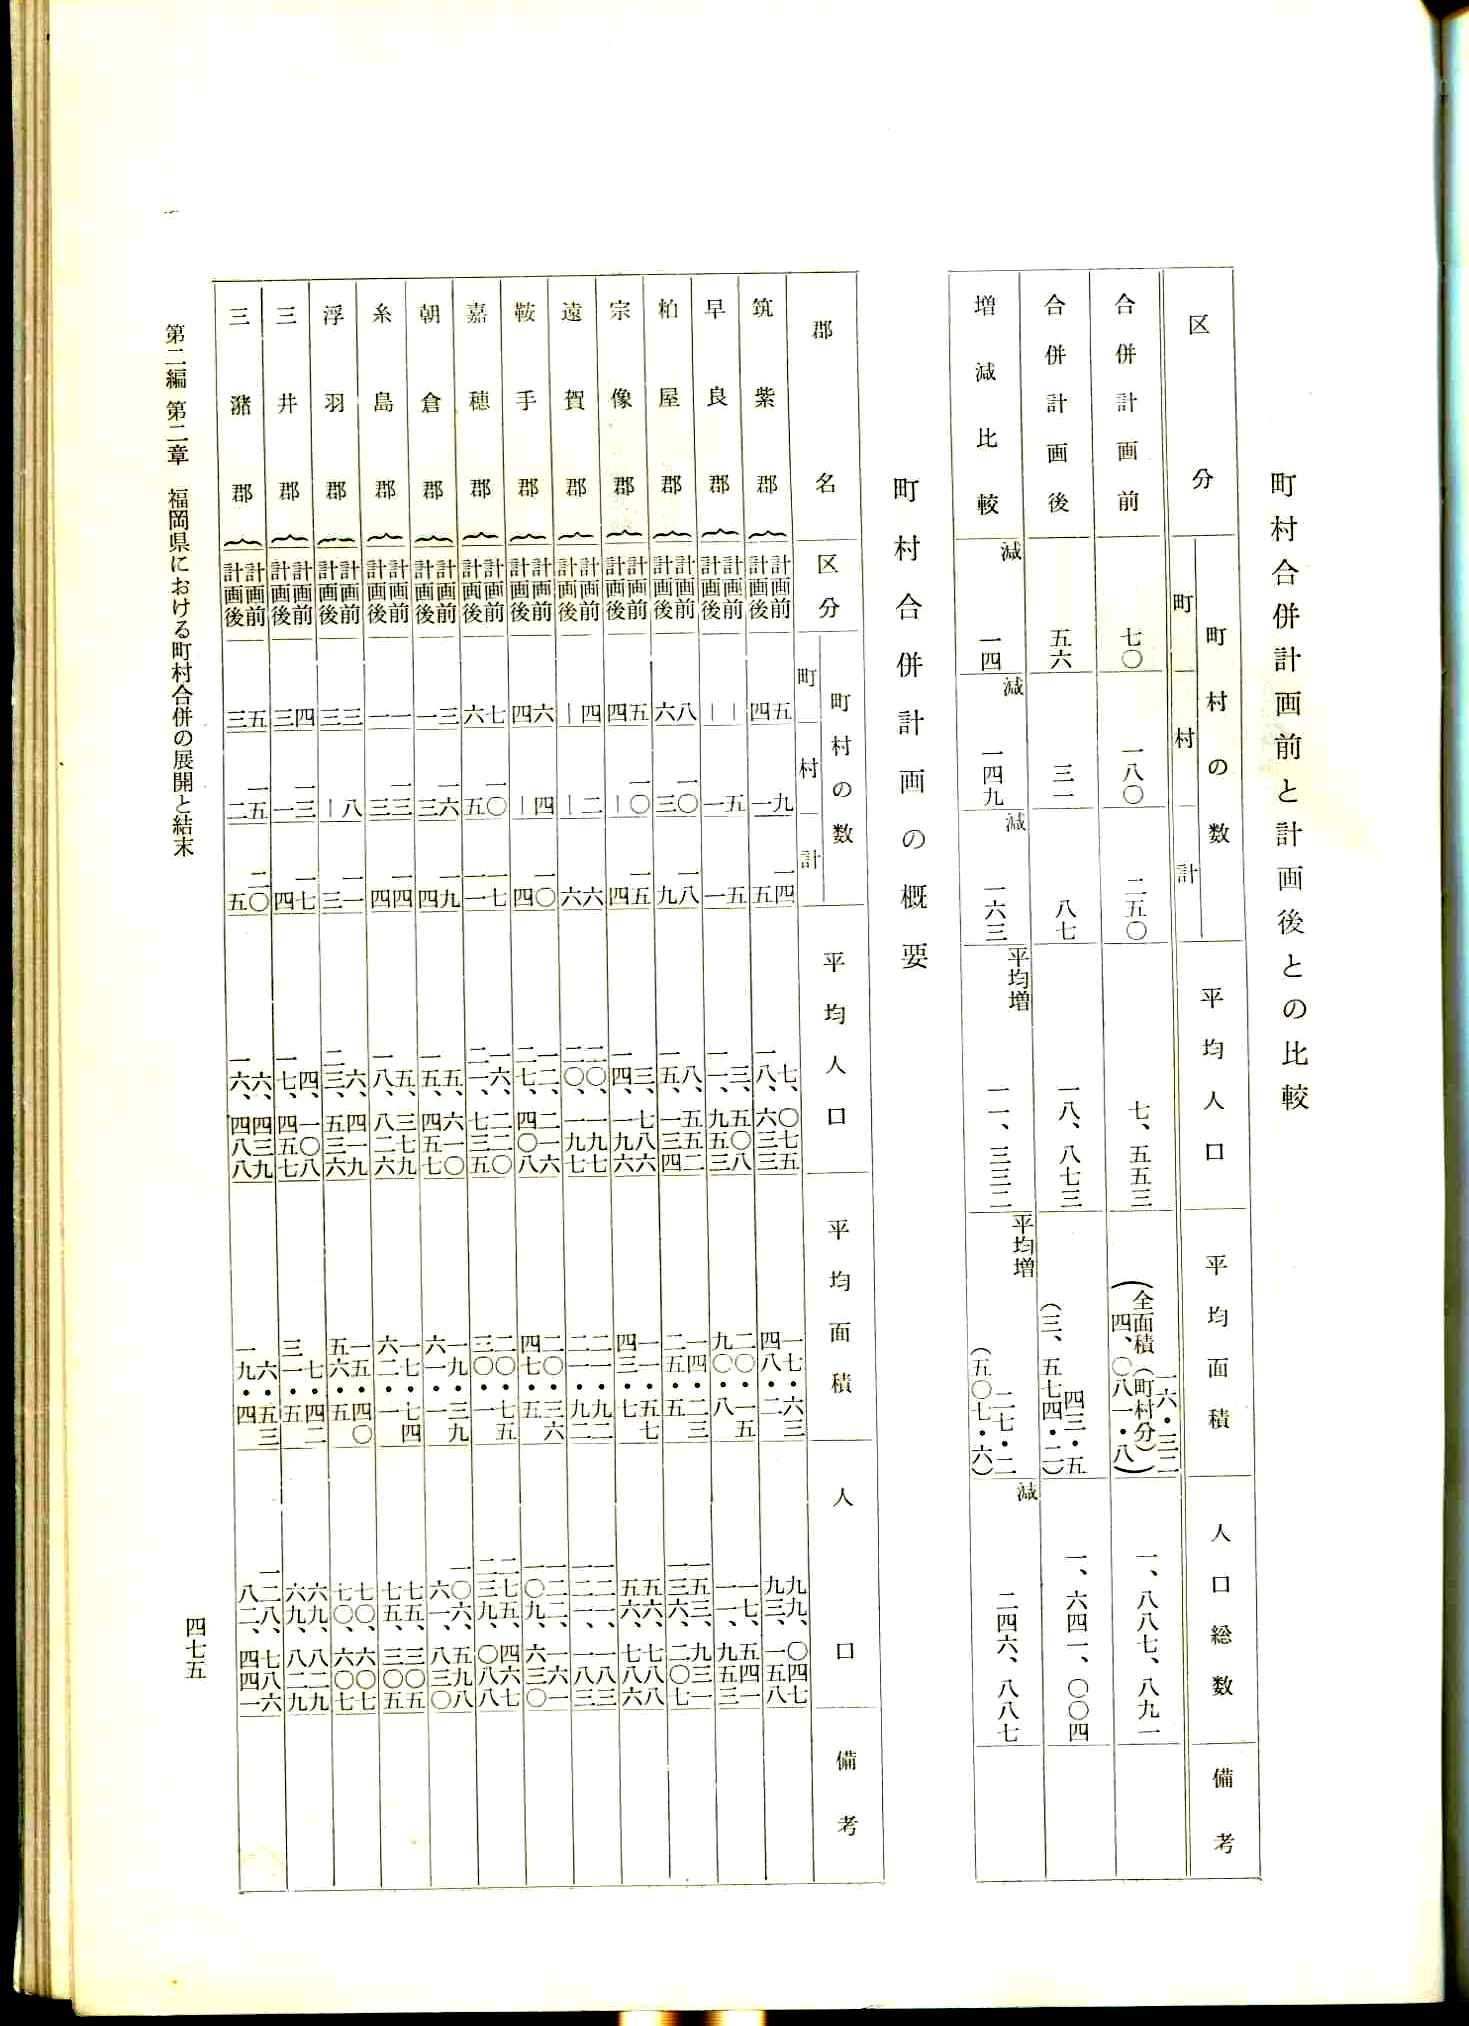 町村合併計画前と計画後との比較
区分 町村の数 平均人口 平均面積 人口総数 備考
町 村 計
合併計画前 七〇 一八〇 二五〇 七、五五三 一六・三二 (全面積(町村分) 四、〇八一・八) 一、八八七、八九一
合併計画後 五六 三一 八七 一八、八七三 四三・五 (三、五七四・二) 一、六四一、〇〇四
増減比較 減一四 減一四九 減一六三 平均増一一、三三二 平均増二七・二 (五〇七・六) 減二四六、八八七
町村合併計画の概要
郡名 区分 町村の数 平均人口 平均面積 人口 備考
町 村 計
筑紫郡 計画前 五 九 一四 七、〇七五 一七・六三 九九、〇四七
計画後 四 一 五 一八、六三三 四八・二 九三、一五八
早良郡 計画前 ｜ 五 五 三、五〇八 二〇・一五 一七、五四一
計画後 ｜ 一 一 一一、九五三 九〇・八 一一、九五三
粕屋郡 計画前 八 一〇 一八 八、五五二 一四・二三 一五三、九三一
計画後 六 三 九 一五、一三四 二五・五 一三六、二〇七
宗像郡 計画前 五 一〇 一五 三、七八六 一一・五七 五六、七八八
計画後 四 ｜ 四 一四、一九六 四三・七 五六、七八六
遠賀郡 計画前 四 二 六 二〇、一九七 二一・九二 一二一、一八三
計画後 ｜ ｜ 六 二〇、一九七 二一・九二 一二一、一八三
鞍手郡 計画前 六 四 一〇 一二、二一六 二〇・三六 一二二、一六一
計画後 四 ｜ 四 二七、四〇八 四七・五 一〇九、六三〇
嘉穂郡 計画前 七 一〇 一七 一六、二二〇 二〇・七五 二七五、四六七
計画後 六 五 一一 二一、七三五 三〇・一 二三九、〇八八
朝倉郡 計画前 三 一六 一九 五、六一〇 一九・三九 一〇六、五九八
計画後 一 三 四 一五、四五七 六一・一 六一、八三〇
糸島郡 計画前 一 一三 一四 五、三七九 一七・七四 七五、三〇五
計画後 一 三 四 一八、八二六 六二・一 七五、三〇五
浮羽郡 計画前 三 八 一一 六、四一九 一五・四〇 七〇、六〇七
計画後 三 ｜ 三 二三、五三六 五六・五 七〇、六〇七
三井郡 計画前 四 一三 一七 四、一〇八 七・四二 六九、八二九
計画後 三 一 四 一七、四五七 三一・五 六九、八二九
三潴郡 計画前 五 一五 二〇 六、四三九 六・五三 一二八、七八六
計画後 三 二 五 一六、四八八 一九・四 八二、四四一
第二編 第二章 福岡県における町村合併の展開と結末
四七五